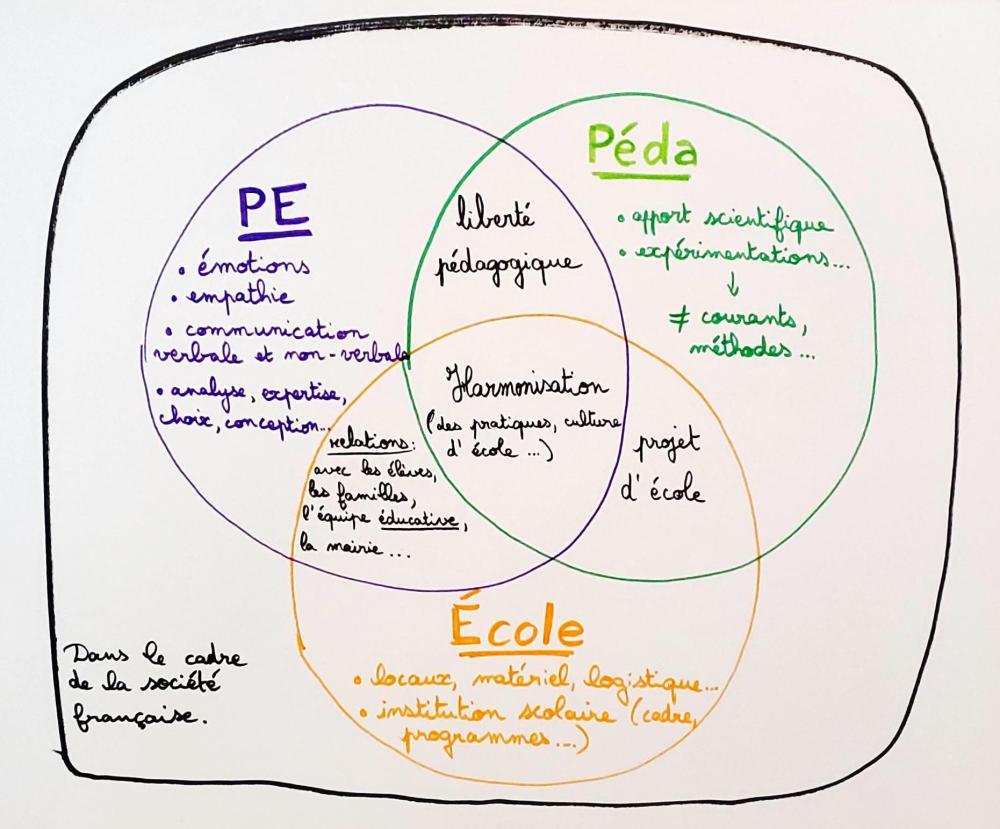 PE
• émotions
• empathie
• communication
verbale et non-verbale
• analyse, expertise,
choix, conception...
liberté
pédagogique
Péda
• apport scientifique
• expérimentations...
↓
≠ courants,
méthodes...
Harmonisation
(des pratiques, culture
d'école ...)
relations:
avec les élèves,
les familles,
l'équipe éducative,
la mairie ...
projet
d'école
École
• locaux, matériel, logistique...
• institution scolaire (cadre,
programmes...)
Dans le cadre
de la société
française.